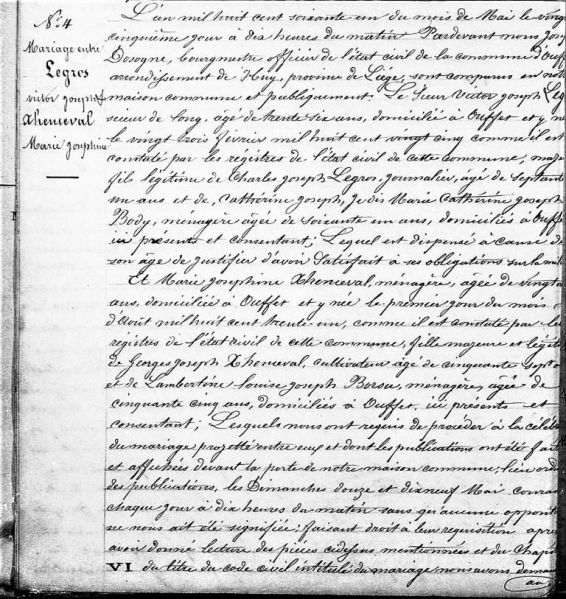 N.° 4
Mariage entre
Legros
victor joseph
Xhenceval
Marie Josephine
L'an mil huit cent soixante un du mois de Mai le vingt
cinquième jour à dix heures du matin Pardevant nous
Dosogne, bourgmestre officier de l'état civil de la commune d'Ouff
arrondissement de Huy, province de Liège, sont comparus en notre
maison commune et publiquement: Le Sieur Victor joseph Leg
scieur de long, agé de trente six ans, domicilié à Ouffet et y né
le vingt trois février mil huit cent vingt cinq comme il est
constaté par les registres de l'état civil de cette commune, maje
fils légitime de Charles joseph Legros, journalier, âgé de septant
un ans et de, Cathérine joseph, je dis Marie Cathérine joseph
Body, ménagère agée de soixante un ans, domiciliés à Ouffe
ici présents et consentant; Lequel est dispensé à cause de
son âge de justifier d'avoir satisfait à ses obligations sur la mili
Et Marie Josephine Xhenceval, ménagère, agée de vingt
ans, domiciliée à Ouffet et y née le premier jour du mois
d'Août mil huit cent trente un, comme il est constaté par les
registres de l'état civil de cette commune, fille majeure et légiti
de Georges joseph Xhenceval, cultivateur âgé de cinquante sept a
et de Lambertine Louise joseph Bersu, ménagère, agée de
cinquante cinq ans, domiciliés à Ouffet, ici présents et
consentant; Lesquels nous ont requis de procéder à la céléb
du mariage projetté entre eux et dont les publications ont été fait
et affichées devant la porte de notre maison commune,
des publications, les Dimanches douze et dixneuf Mai couran
chaque jour à dix heures du matin sans qu'aucune oppositi
ne nous ait été signifiée; faisant droit à leur requisition après
avoir donné lecture des pièces cidessus mentionnées et du Chapit
VI du titre du code civil intitulé du mariage nous avons deman
au